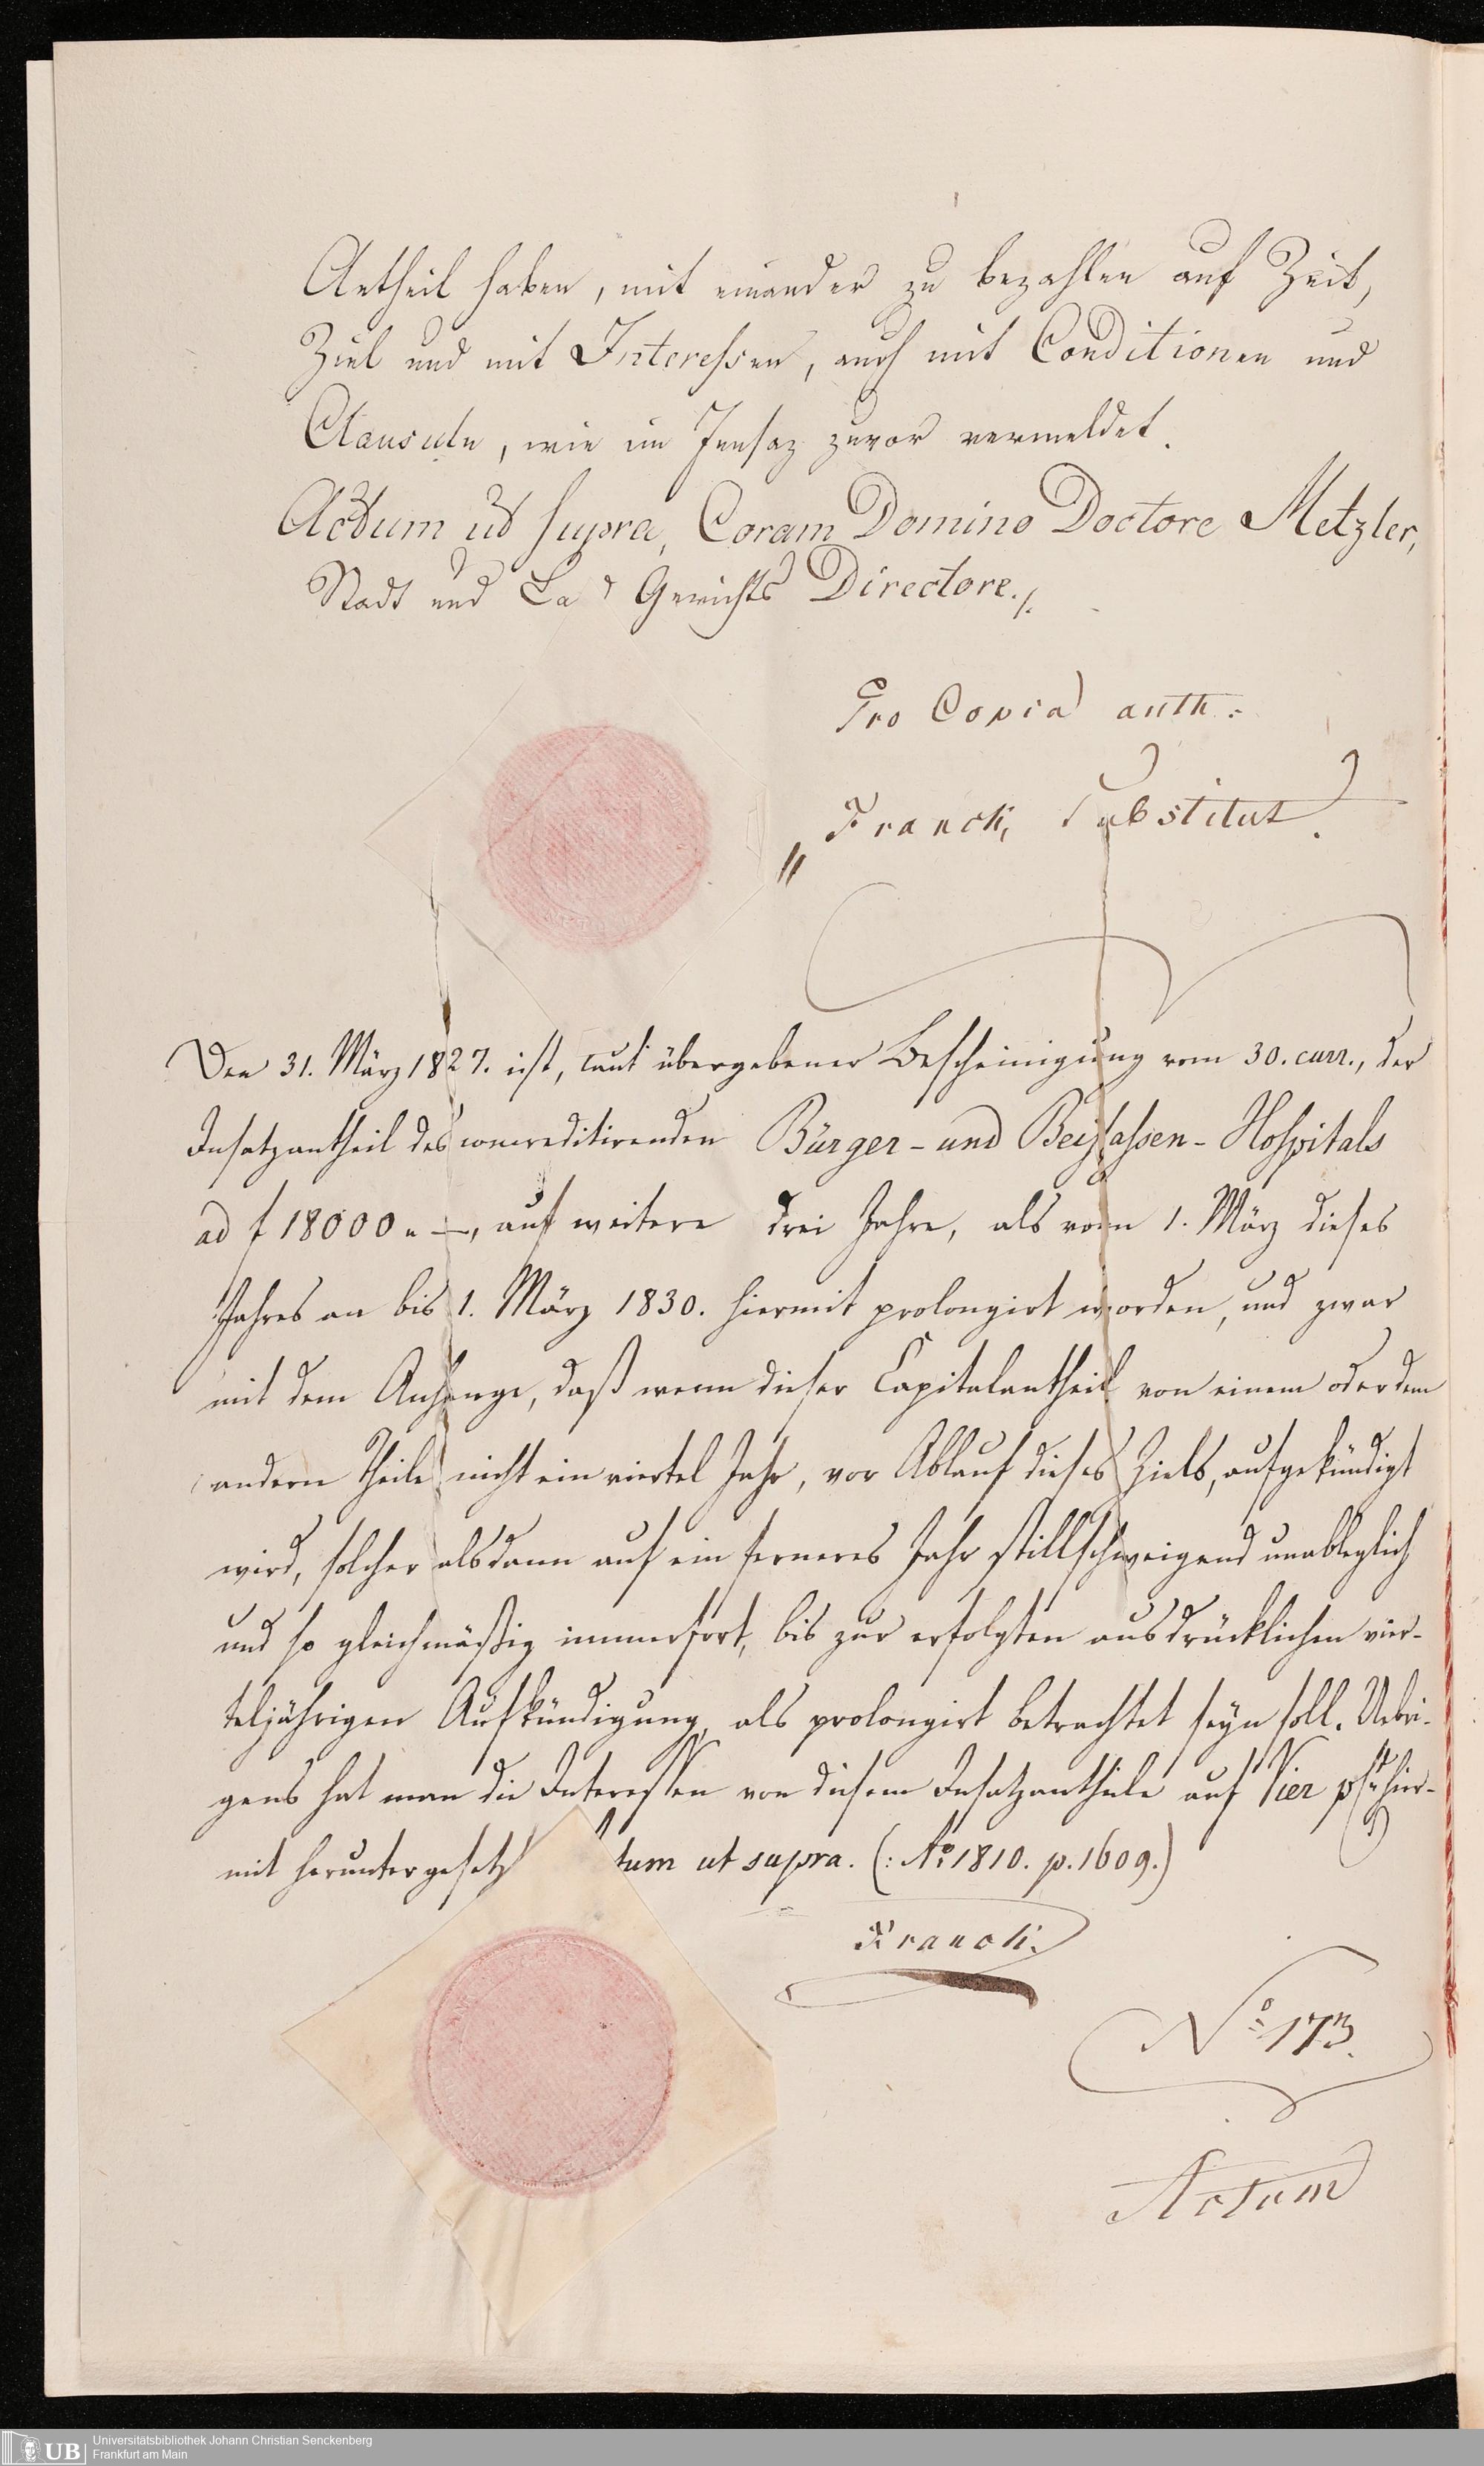 Antheil haben, mit einander zu bezahlen auf Zeit,
Ziel und mit Interessen, auch mit Conditionen und
Clausuln, wie im Insaz zuvor vermeldet.
Actum ut supra, Coram Domino Doctore Metzler,
Stadt und La d Gerichts Directore./.
Pro Copia auth:
Franck, Substitut.
Den 31. März 1827. ist, laut übergebener Bescheinigung vom 30. curr., der
Insatzantheil des concreditirenden Bürger- und Beysassen-Hospitals
ad f 18000 „ —, auf weitere drei Jahre, als vom 1. März dieses
Jahres an bis 1. März 1830. hiermit prolongirt worden, und zwar
mit dem Anhange, daß wenn dieser Capitalantheil von einem oder dem
andern Theile nicht ein viertel Jahr, vor Ablauf dieses Ziels, aufgekündigt
wird, solcher alsdann auf ein ferneres Jahr stillschweigend unableglich
und so gleichmäßig immerfort, bis zur erfolgten ausdrücklichen vier-
teljährigen Aufkündigung, als prolongirt betrachtet seyn soll. Uebri-
gens hat man die Interessen von diesem Insatzantheile auf Vier hier-
mit heruntergesetz tum ut supra. (: No. 1810. p. 1609.)
Franck.
No. 173.
Actum
UB
Universitätsbibliothek Johann Christian Senckenberg
Frankfurt am Main